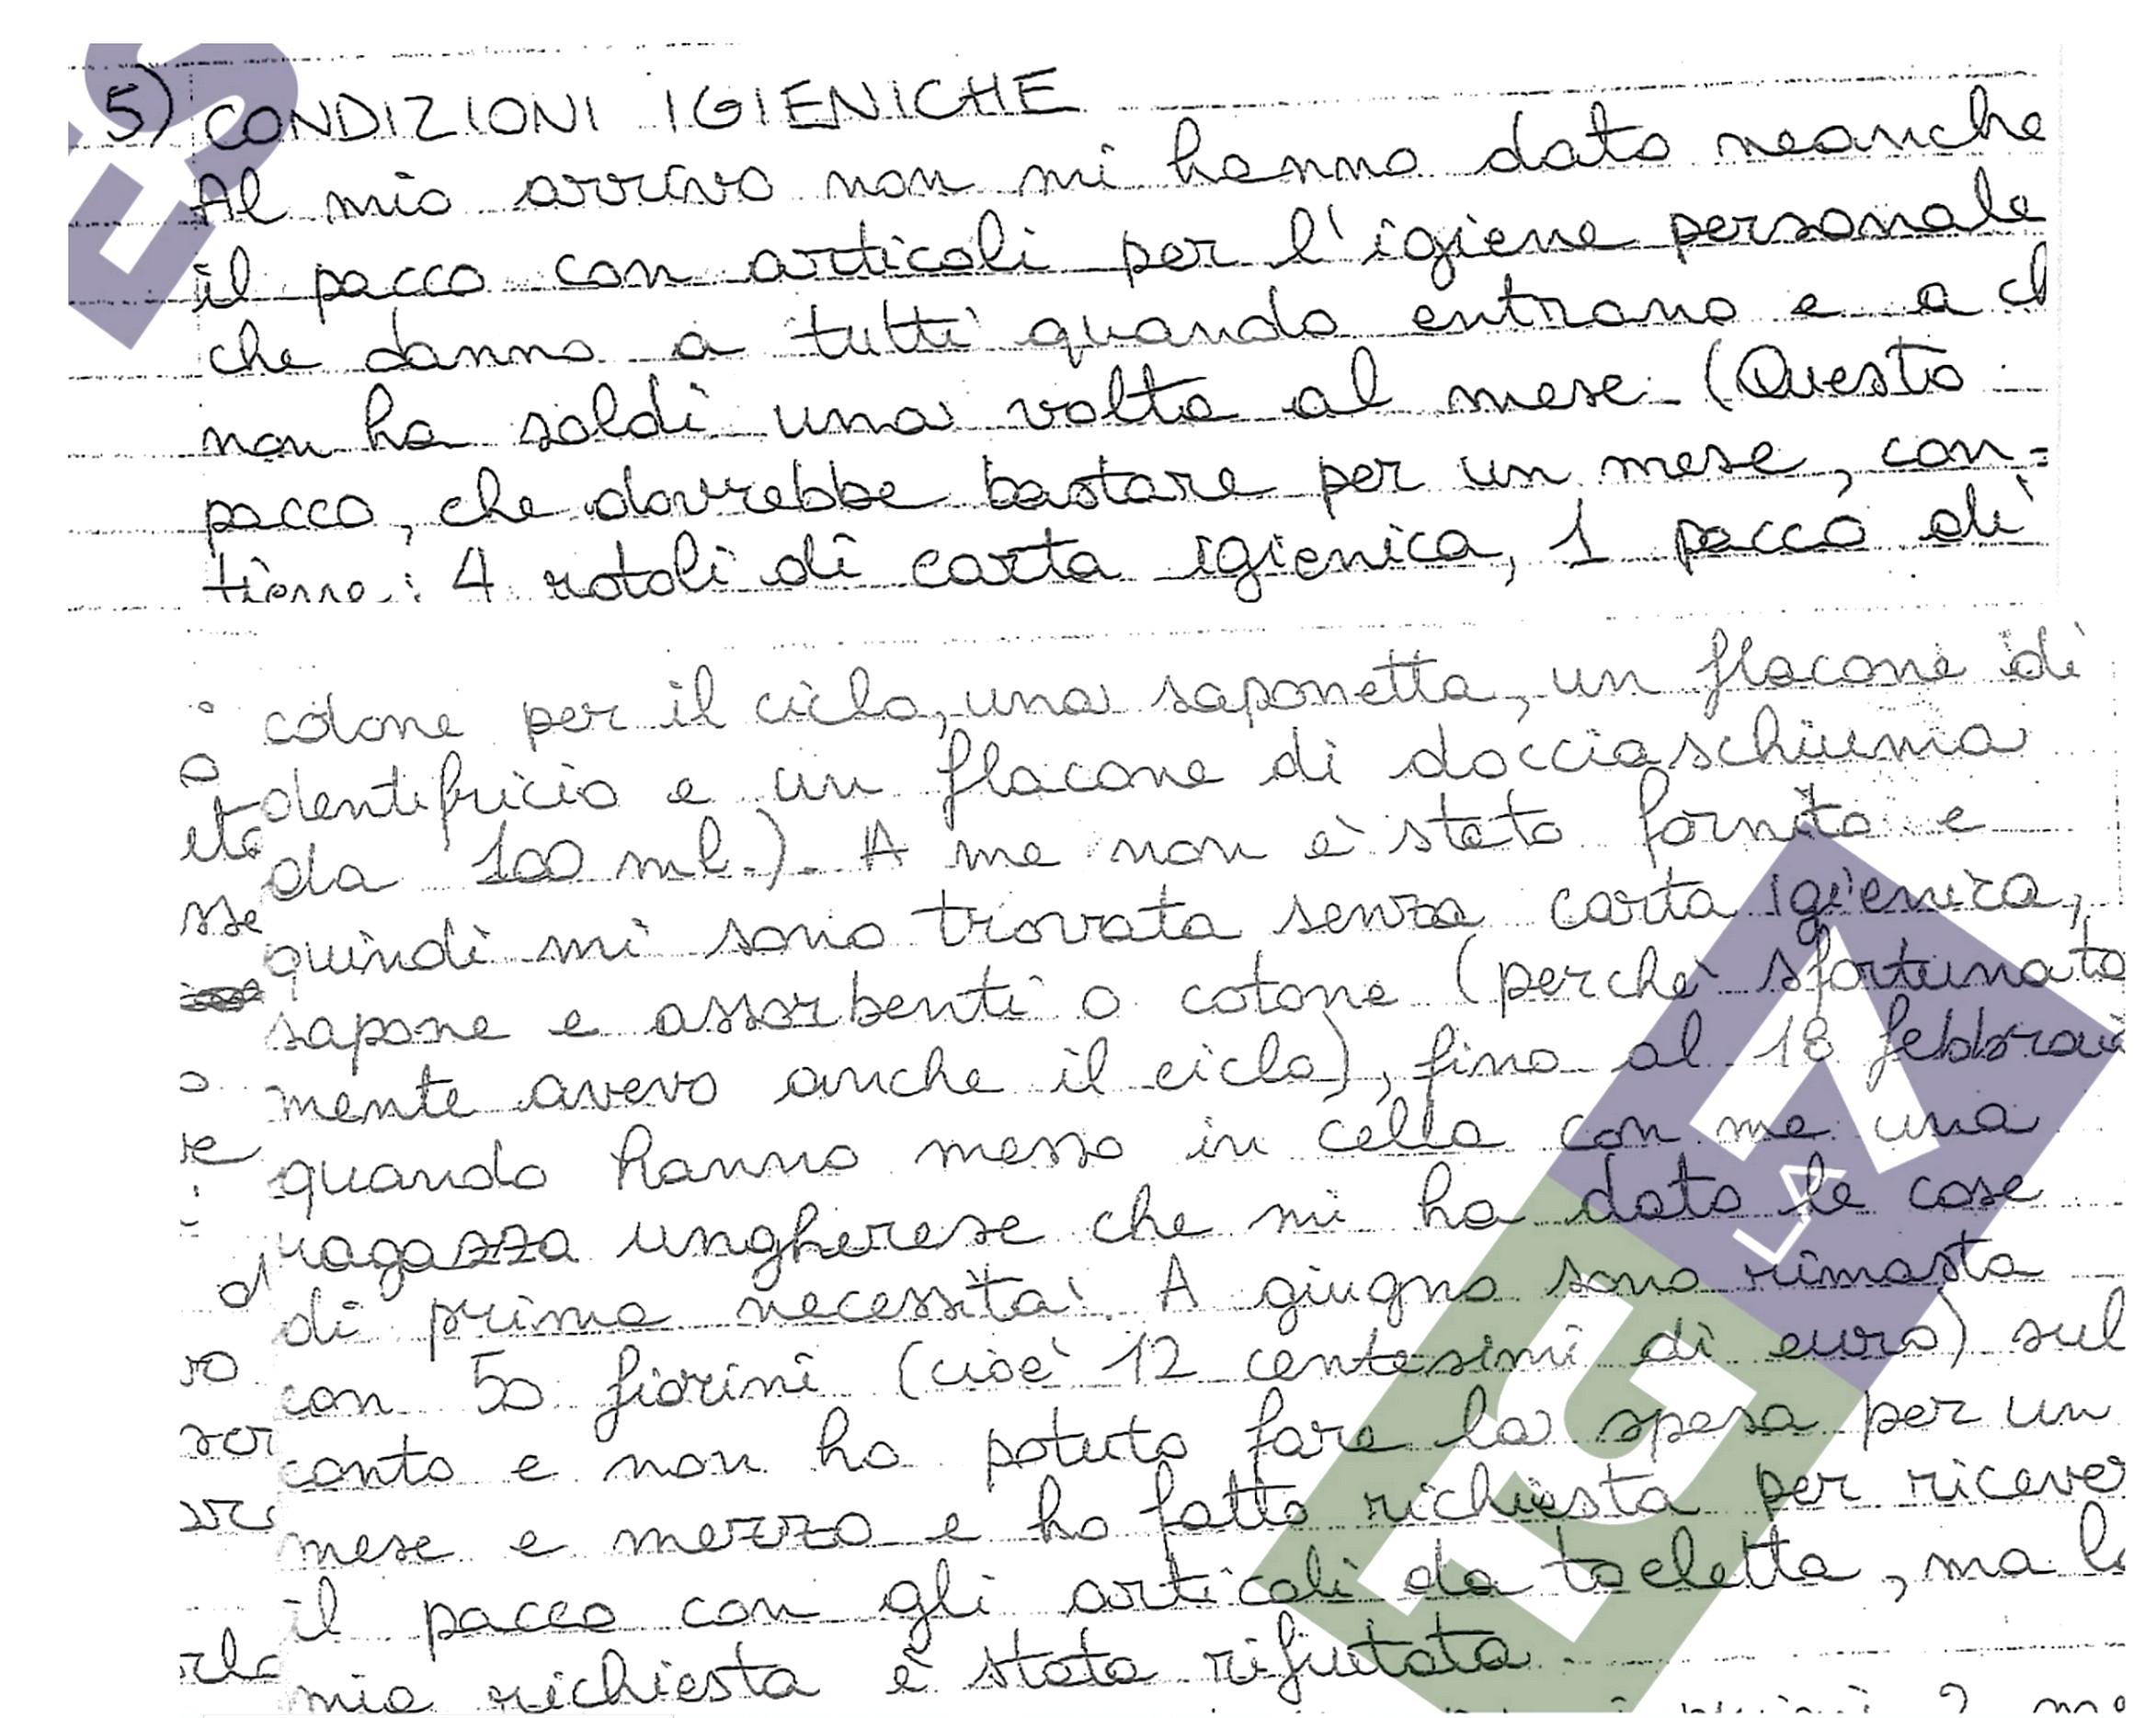 5) CONDIZIONI IGIENICHE
Al mio arrivo non mi hanno dato neanche
il pacco con articoli per l'igiene personale
che danno a tutti quando entrano e a ch
non ha soldi una volta al mese. (Questo
pacco, che dovrebbe bastare per un mese, con=
tiene: 4 rotoli di carta igienica, 1 pacco di
cotone per il ciclo, una saponetta, un flacone di
dentifricio e un flacone di docciaschiuma
da 100 ml.). A me non è stato fornito e
quindi mi sono trovata senza carta igienica,
sapone e assorbenti o cotone (perchè sfortunata
mente avevo anche il ciclo), fino al 18 febbrai
quando hanno messo in cella con me una
ragazza ungherese che mi ha dato le cose
di prima necessità. A giugno sono rimasta
con 50 fiorini (cioè 12 centesimi di euro) sul
conto e non ho potuto fare la spesa per un
mese e mezzo e ho fatto richiesta per ricever
il pacco con gli articoli da toeletta, ma la
mia richiesta è stata rifiutata.
LA